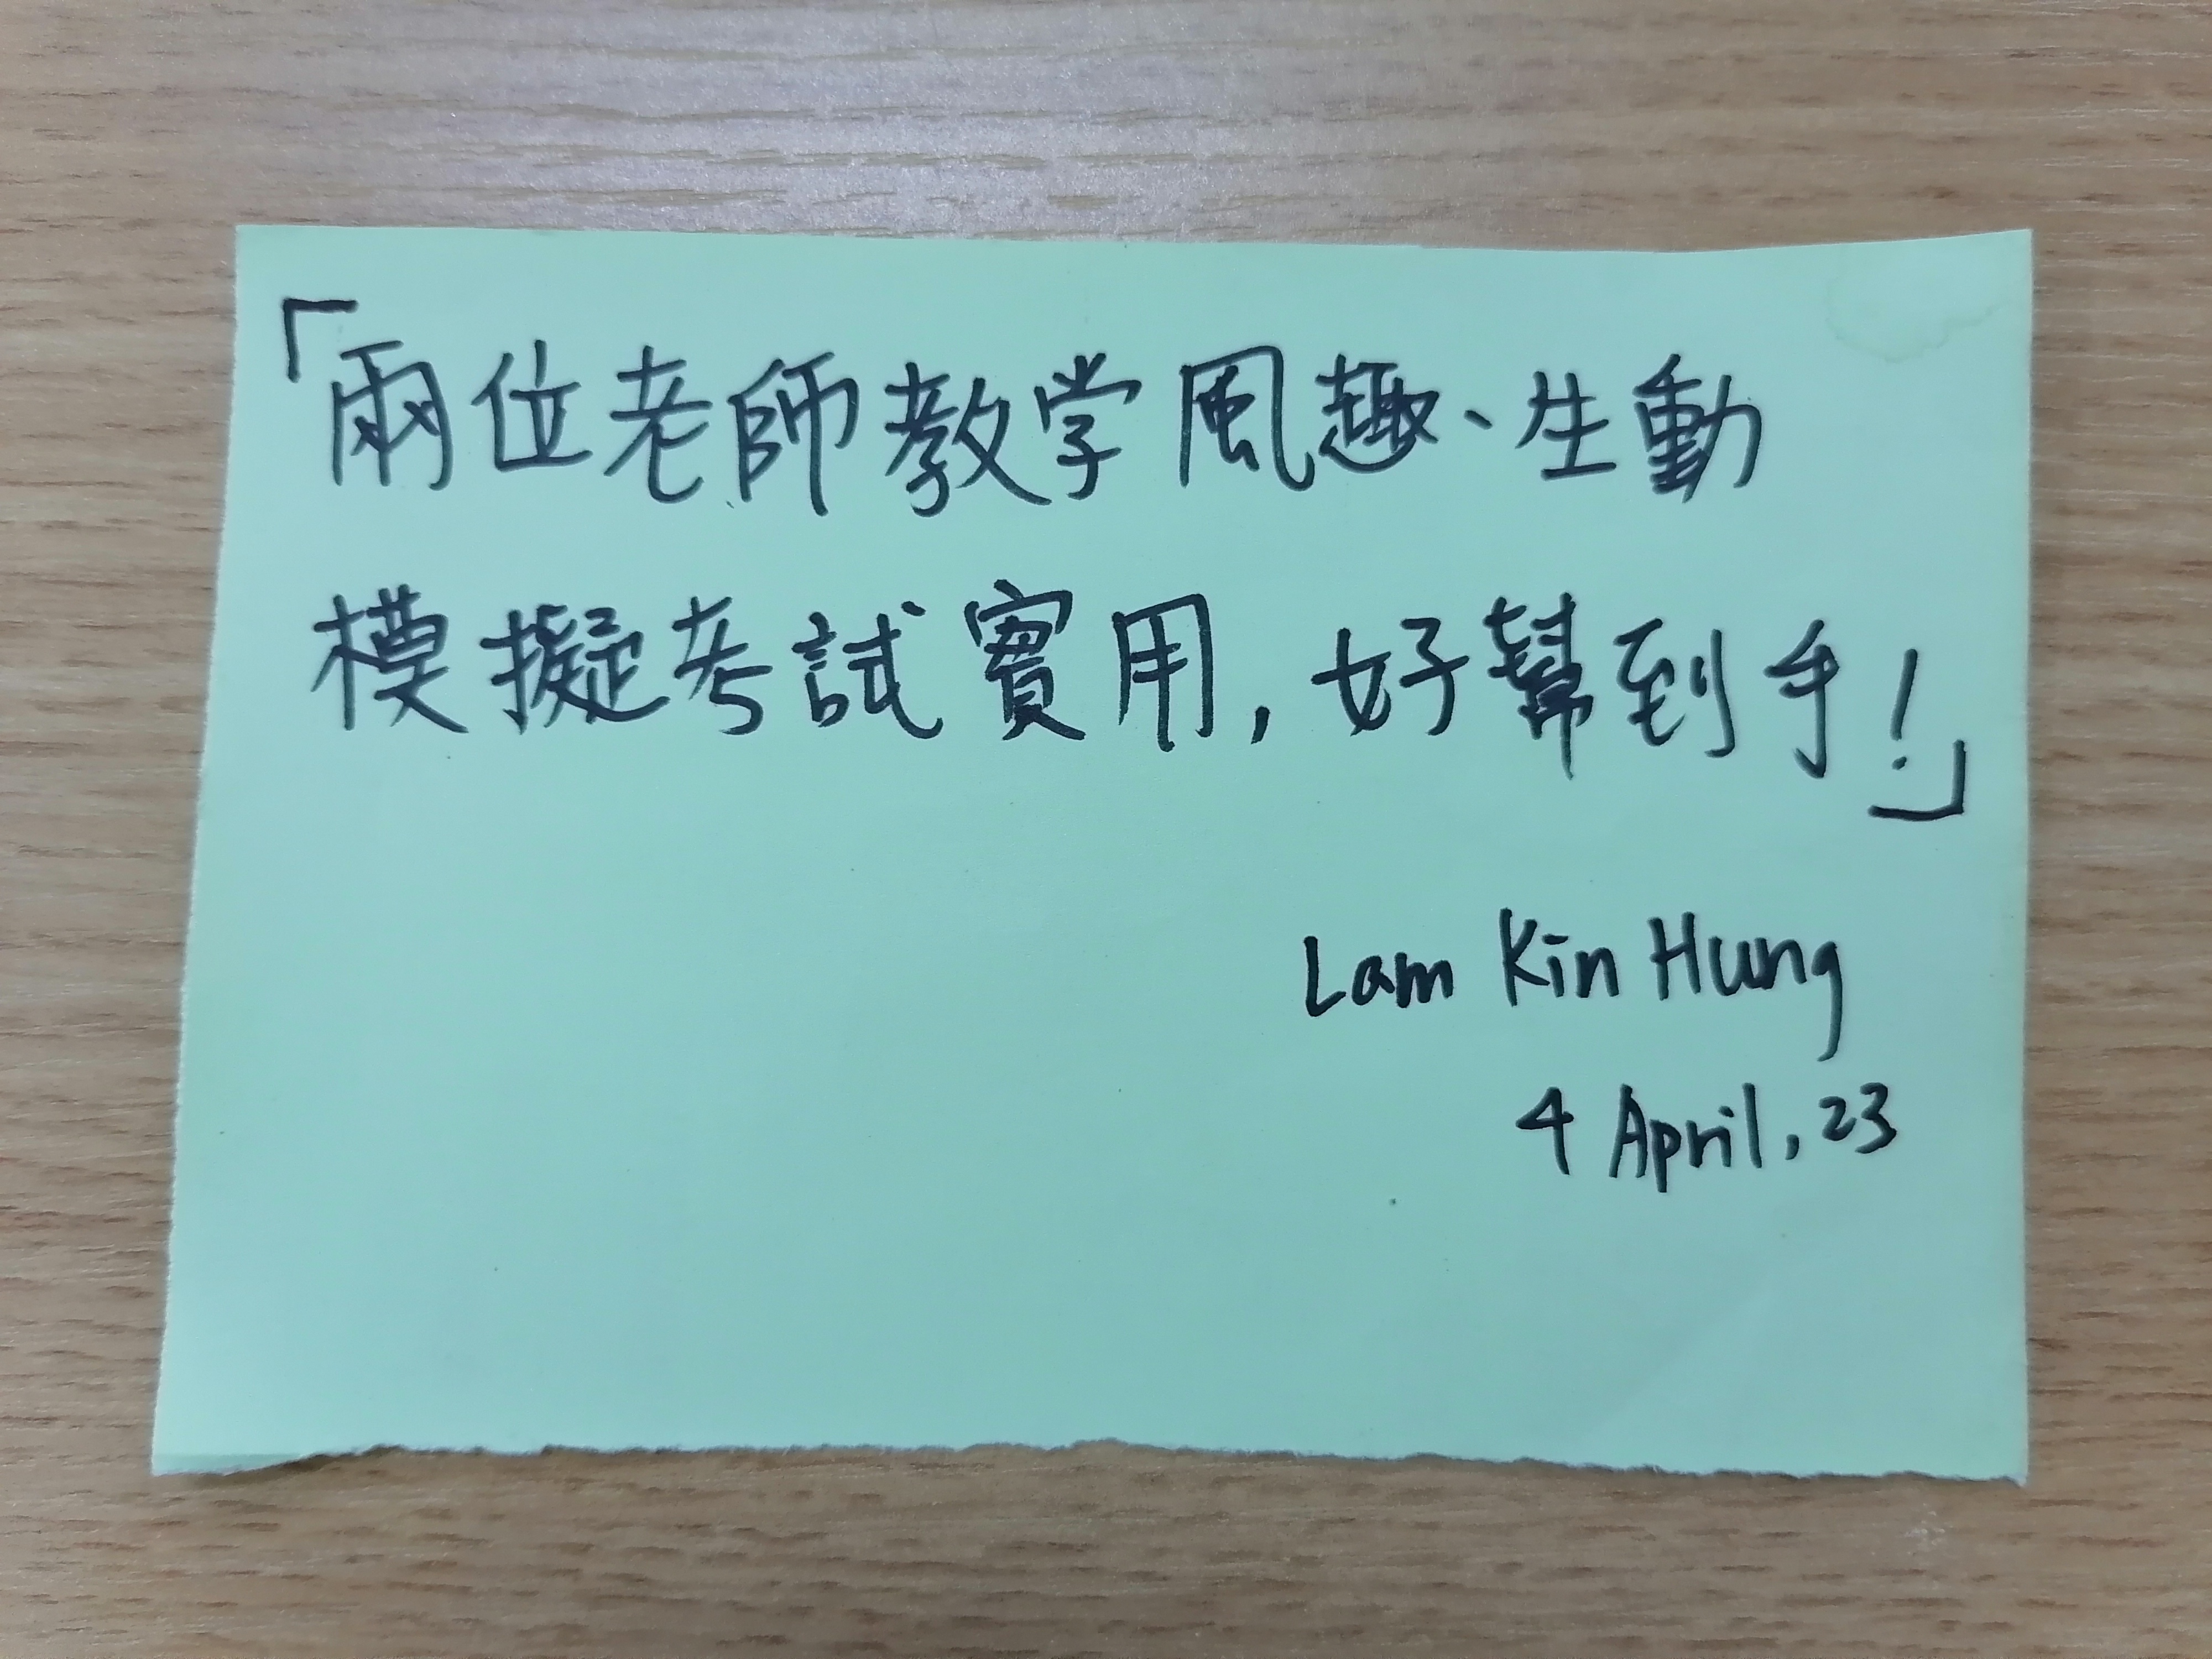 「兩位老師教学風趣、生動
模擬考試實用,好幫到手!」
Lam Kin Hung
4 April, 23